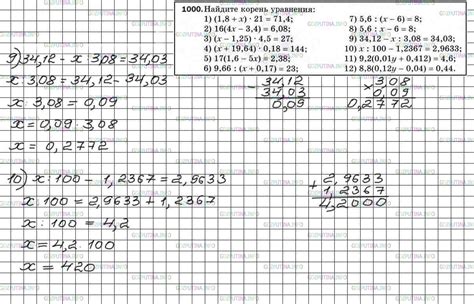 1000. Найдите корень уравнения:
1) (1,8 + x) · 21 = 71,4;
2) 16(4x − 3,4) = 6,08;
3) (x − 1,25) · 4,5 = 27;
4) (x + 19,64) · 0,18 = 144;
5) 17(1,6 − 5x) = 2,38;
6) 9,66 : (x + 0,17) = 23;
7) 5,6 : (x − 6) = 8;
8) 5,6 : x − 6 = 8;
9) 34,12 − x : 3,08 = 34,03;
10) x : 100 − 1,2367 = 2,9633;
11) 9,2(0,01y + 0,412) = 4,6;
12) 8,8(0,12y − 0,04) = 0,44.
9) 34,12 − x : 3,08 = 34,03
x : 3,08 = 34,12 − 34,03
x : 3,08 = 0,09
x = 0,09 · 3,08
x = 0,2772
− 34,12
34,03
0,09
× 3,08
0,09
0,2772
10) x : 100 − 1,2367 = 2,9633
x : 100 = 2,9633 + 1,2367
x : 100 = 4,2
x = 4,2 · 100
x = 420
+ 2,9633
1,2367
4,2000